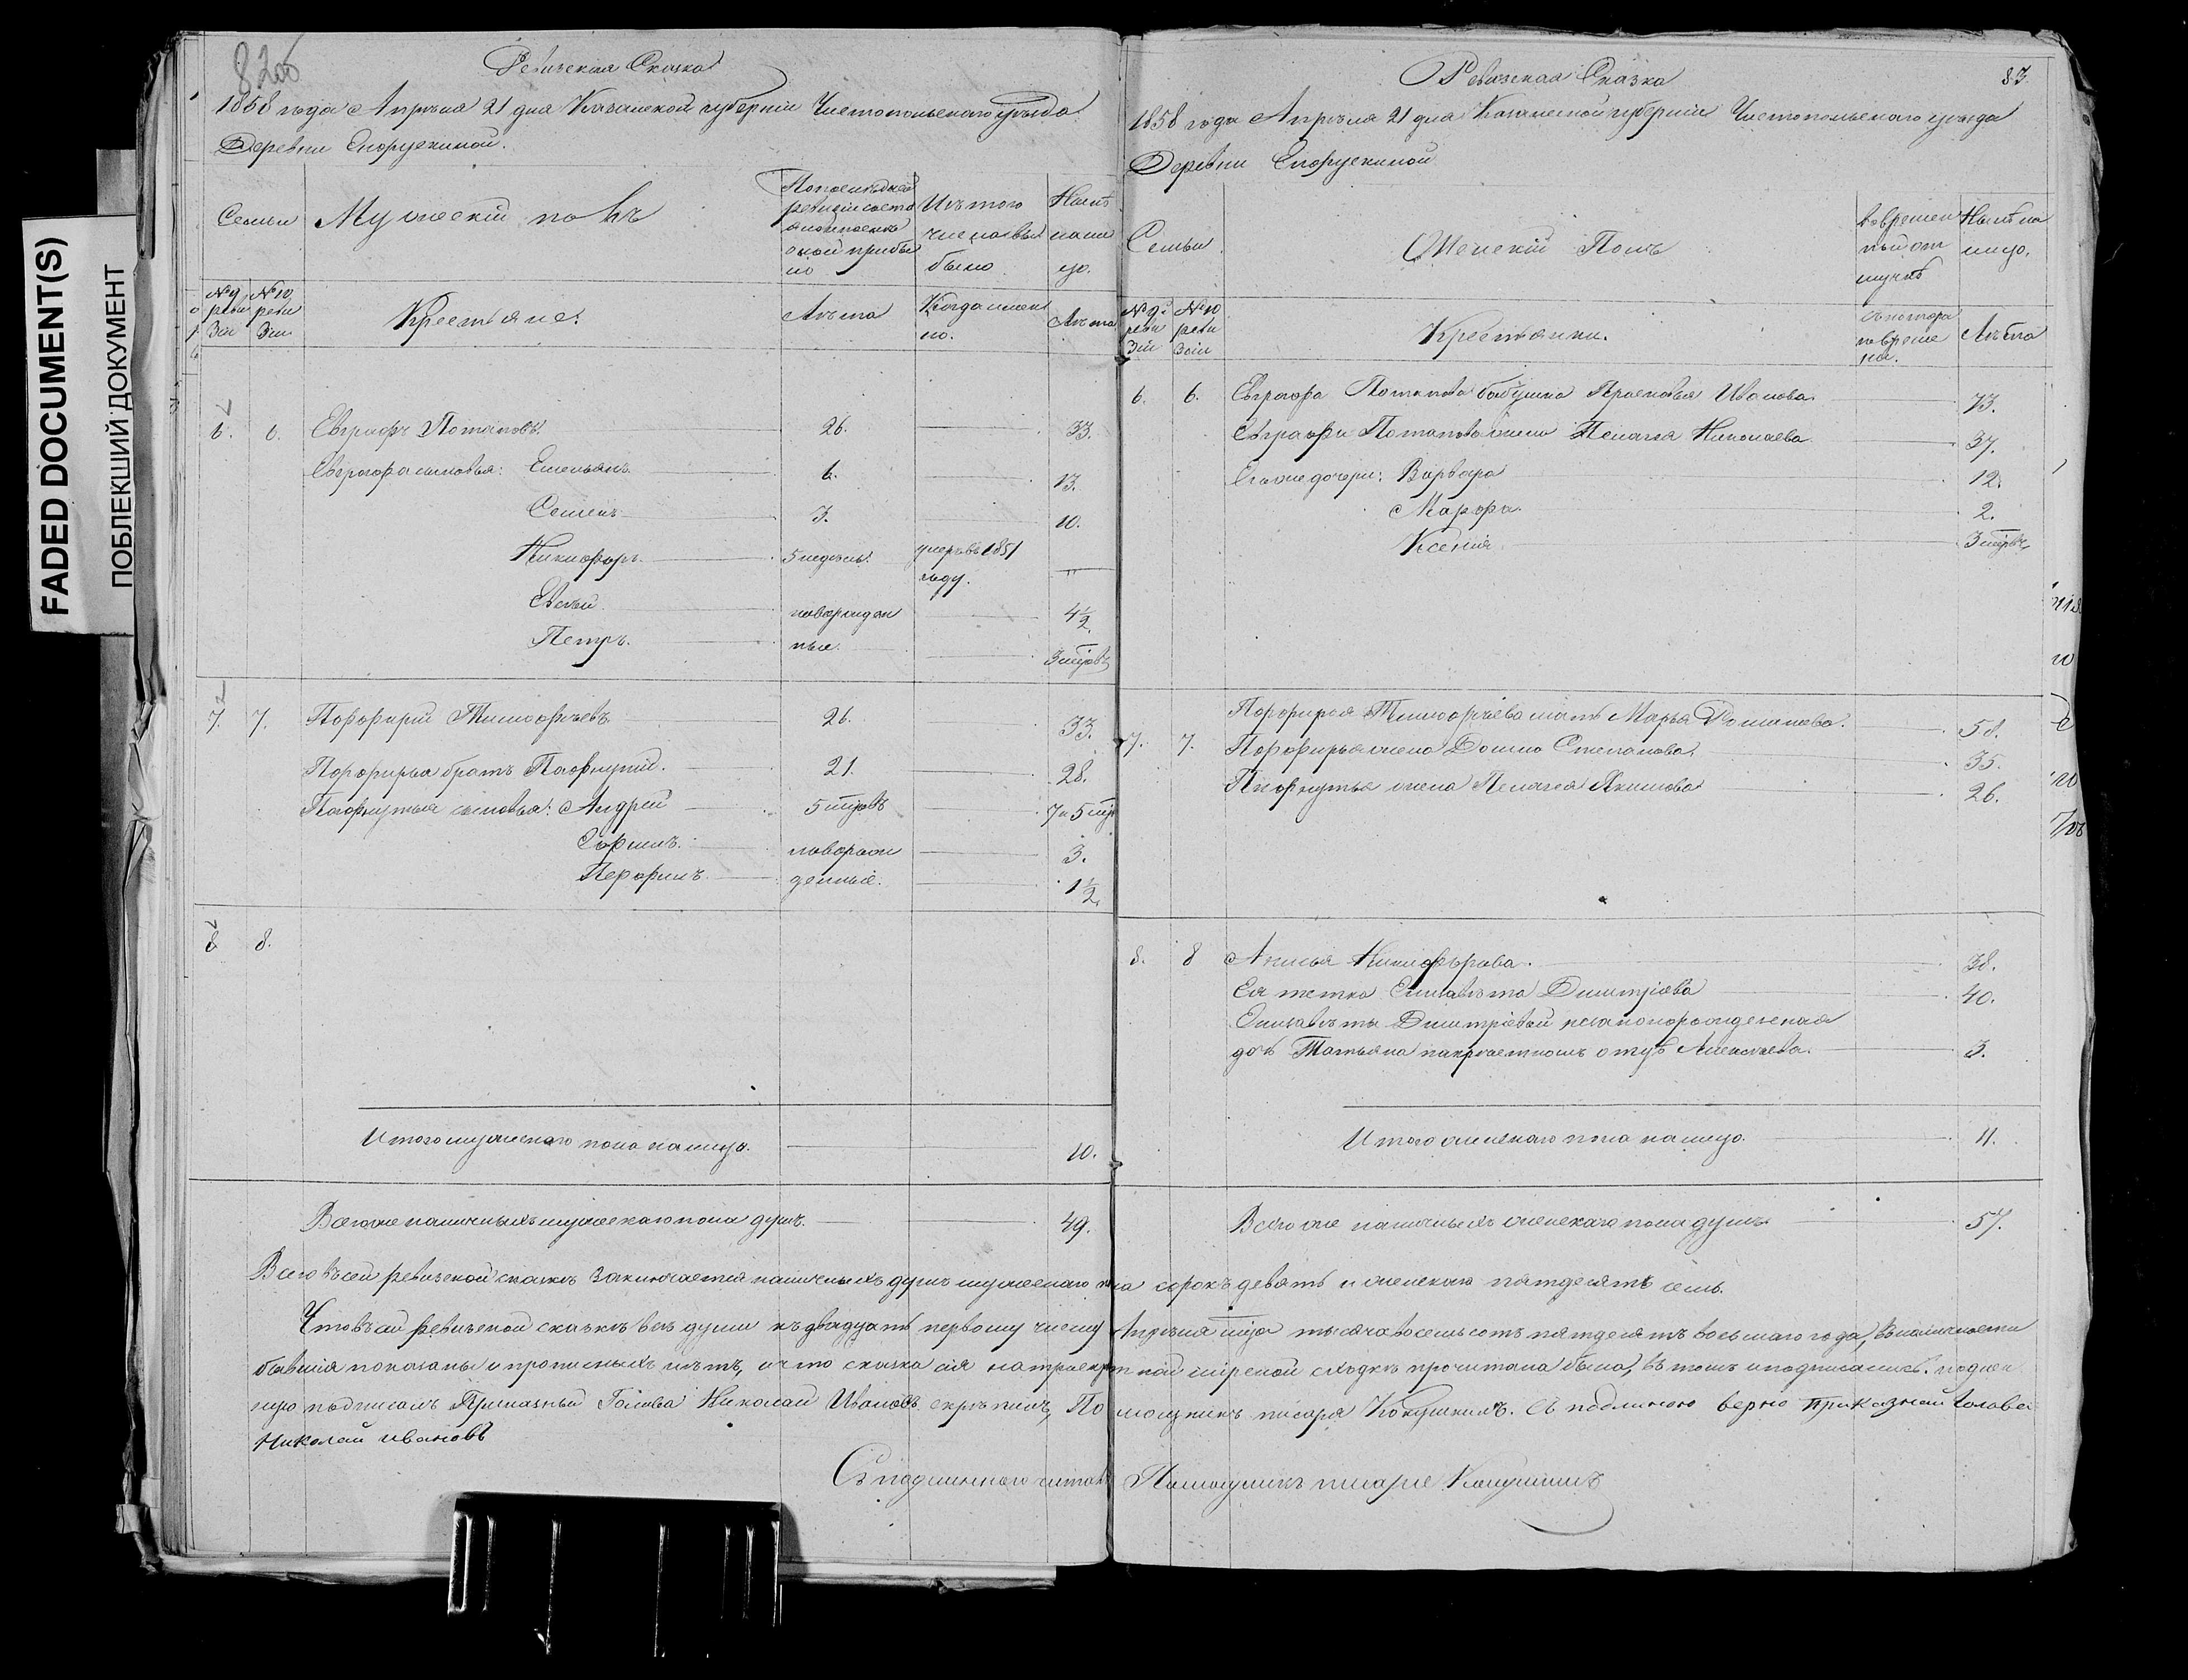 FADED DOCUMENT(S)
ПОБЛЕКШИЙ ДОКУМЕНТ
82об
Ревизская Сказка
1858 года Апрѣля 21 дня Казанской губерніи Чистопольскаго уѣзда
Деревни Елоруской.
Семьи
Мужескій полъ
По последней ревизіи состояло и после оной прибыло
Изъ того числа выбыло
Нынѣ на лицо.
№ 9 ревизіи
№ 10 ревизіи
Крестьяне.
Лѣта
Когда именно.
Лѣта
6. 6. Евграфъ Потаповъ. 26. 33.
Евграфа сыновья: Емельянъ 6. 13.
Семенъ 3. 10.
Никифоръ 5 недѣль. умеръ въ 1851 году. "
Евсѣй новорожден 4 ½
Петръ. ные. 3 мцовъ
7. 7. Порфирій Тимофѣевъ 26. 33.
Порфирья братъ Пафнутій. 21. 28.
Пафнутья сыновья: Андрей 5 мцовъ 7 и 5 мц
Ефимъ. новорож 3.
Перфилъ денные. 1 ½
8 8.
Итого мужескаго пола на лицо. 10.
Всего же наличныхъ мужескаго пола душъ. 49.
83.
Ревизская Сказка
1858 года Апрѣля 21 дня Казанской губерніи Чистопольскаго уѣзда
Деревни Елоруской
Семьи
Женскій Полъ
во временной отлучкѣ
Нынѣ на лицо.
№ 9 ревизіи
№ 10 ревизіи
Крестьянки.
съ котораго времени.
Лѣта
6. 6. Евграфа Потапова бабушка Прасковья Иванова. 73.
Евграфа Потапова жена Пелагея Николаева 37.
Его же дочери: Варвара 12.
Марфа. 2.
Ксенія 3 мцовъ
7. 7. Порфирья Тимофѣева мать Марья Романова. 58.
Порфирья жена Домна Степанова. 35.
Пафнутья жена Пелагея Якимова 26.
8. 8 Анисья Никифорова. 38.
Ея тетка Елизавѣта Димитріева 40.
Елизавѣты Димитріевой незаконорожденная
дочь Татьяна по крестномъ отцѣ Алексѣева. 3.
Итого женскаго пола на лицо. 11.
Всего же наличныхъ женскаго пола душъ 57.
Всего въ сей ревизской сказкѣ заключается наличныхъ душъ мужескаго пола сорокъ девять и женскаго пятдесятъ семь.
Что въ сей ревизской сказкѣ всѣ души къ двадцать первому числу Апрѣля мца тысяча восемьсотъ пятдесятъ восьмаго года, въ наличности
бывшія показаны и прописныхъ нѣтъ, и что сказка сія на троекратной мірской сходкѣ прочитана была, въ томъ и подписались. подлин
ную подписалъ Приказный Голова Николай Ивановъ скрѣпилъ, Помощникъ писаря Кокушкинъ. Съ подлиною верно приказнай голова
Николай ивановъ
Съ подлинною читалъ Помощникъ писаря Кокушкинъ